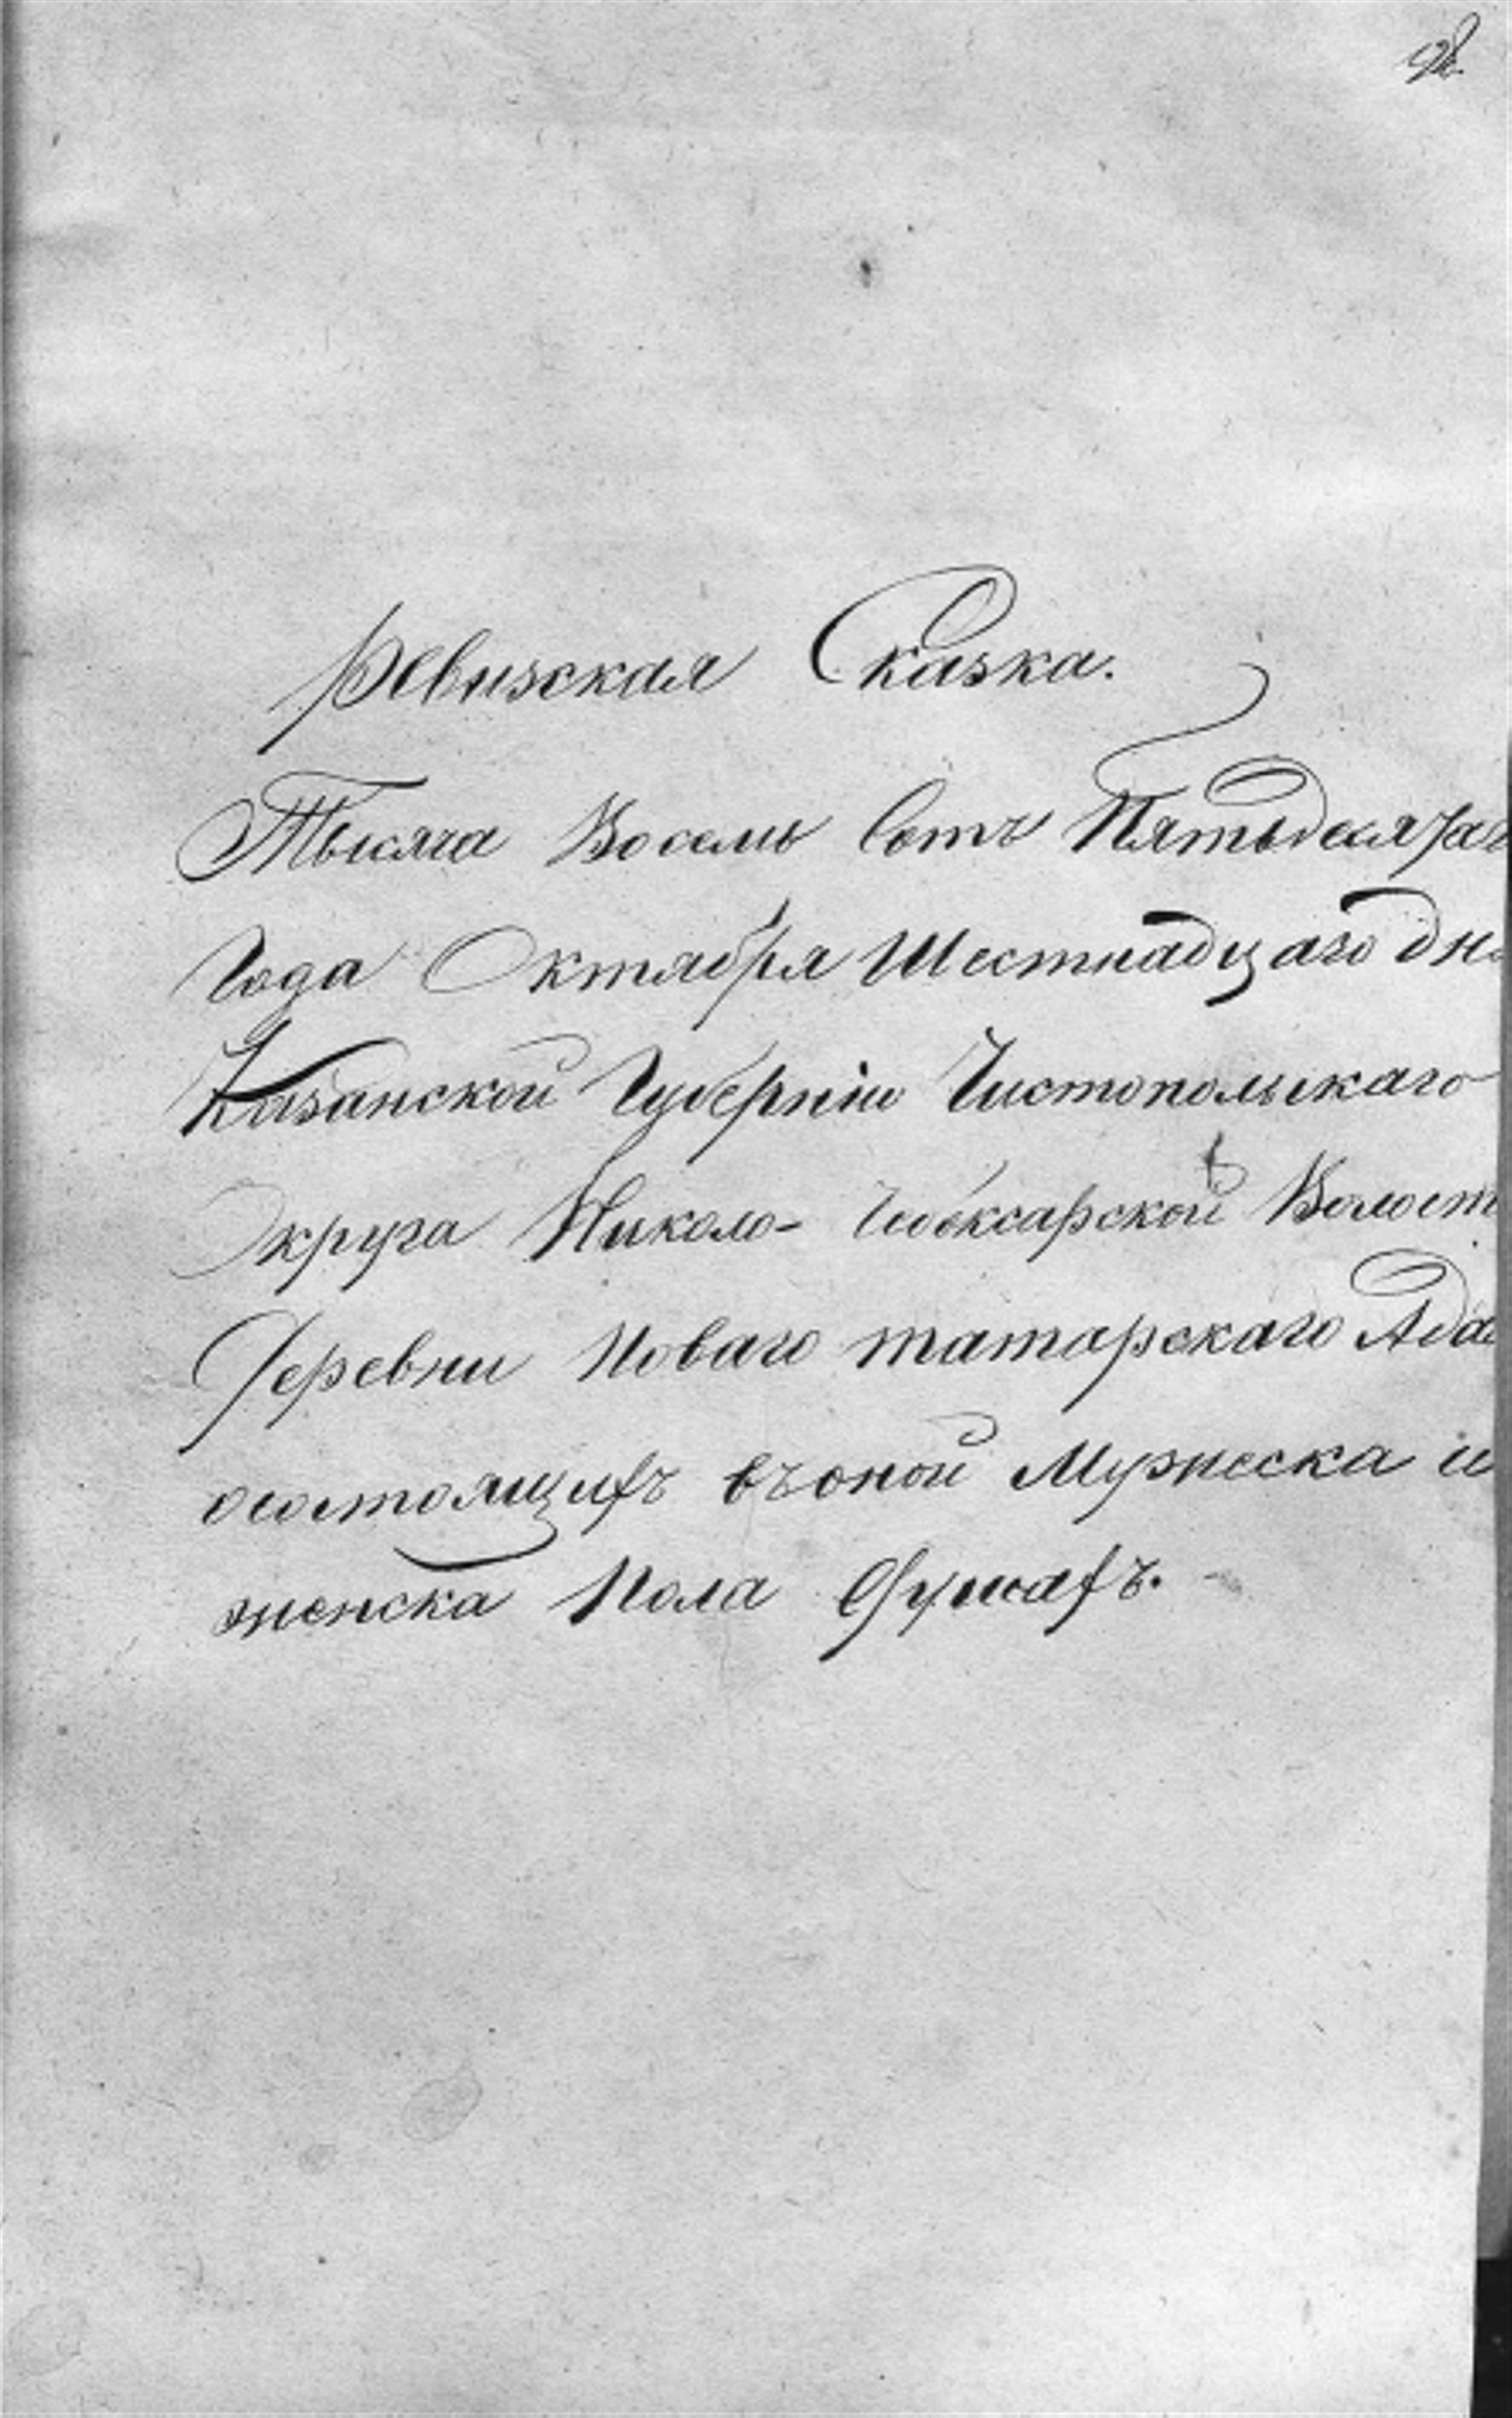 Ревизская Сказка.
Тысяча Восемь Сотъ Пятьдесятаг
Года Октября Шестнадцаго дн
Казанской Губерніи Чистопольскаго
Округа Николо- Чебоксарской Волост
Деревни Новаго татарскаго Ада
осостоящихъ въ оной Мужеска и
женска Пола Душахъ.